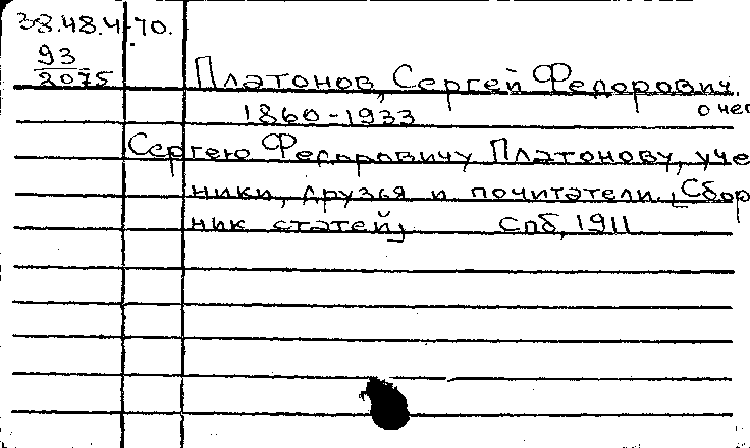 38.48.4-70.
93
2075
Платонов, Сергей Федорович.
1860-1933
о нег
Сергею Федоровичу Платонову, уче
ники, друзья и почитатели. [Сбор
ник статей]   Спб, 1911